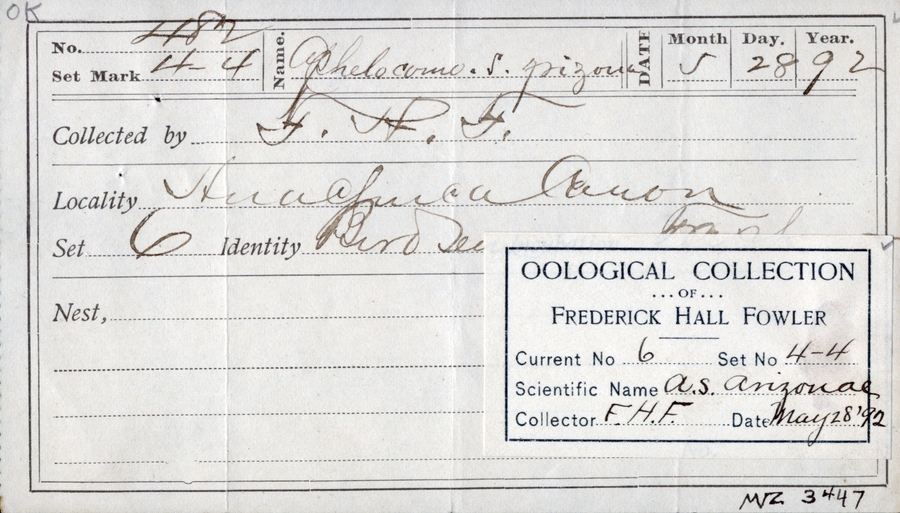 OK
No. 482 Name. Aphelocoma. S. Arizonae DATE Month Day. Year.
Set Mark 4-4 5 28 92
Collected by F. H. F.
Locality Huachuca Canon
Set 6 Identity Bird
Nest,
OOLOGICAL COLLECTION
...OF...
FREDERICK HALL FOWLER
Current No 6 Set No 4-4
Scientific Name A.S. Arizonae
Collector F.H.F. Date May 28 '92
MVZ 3447